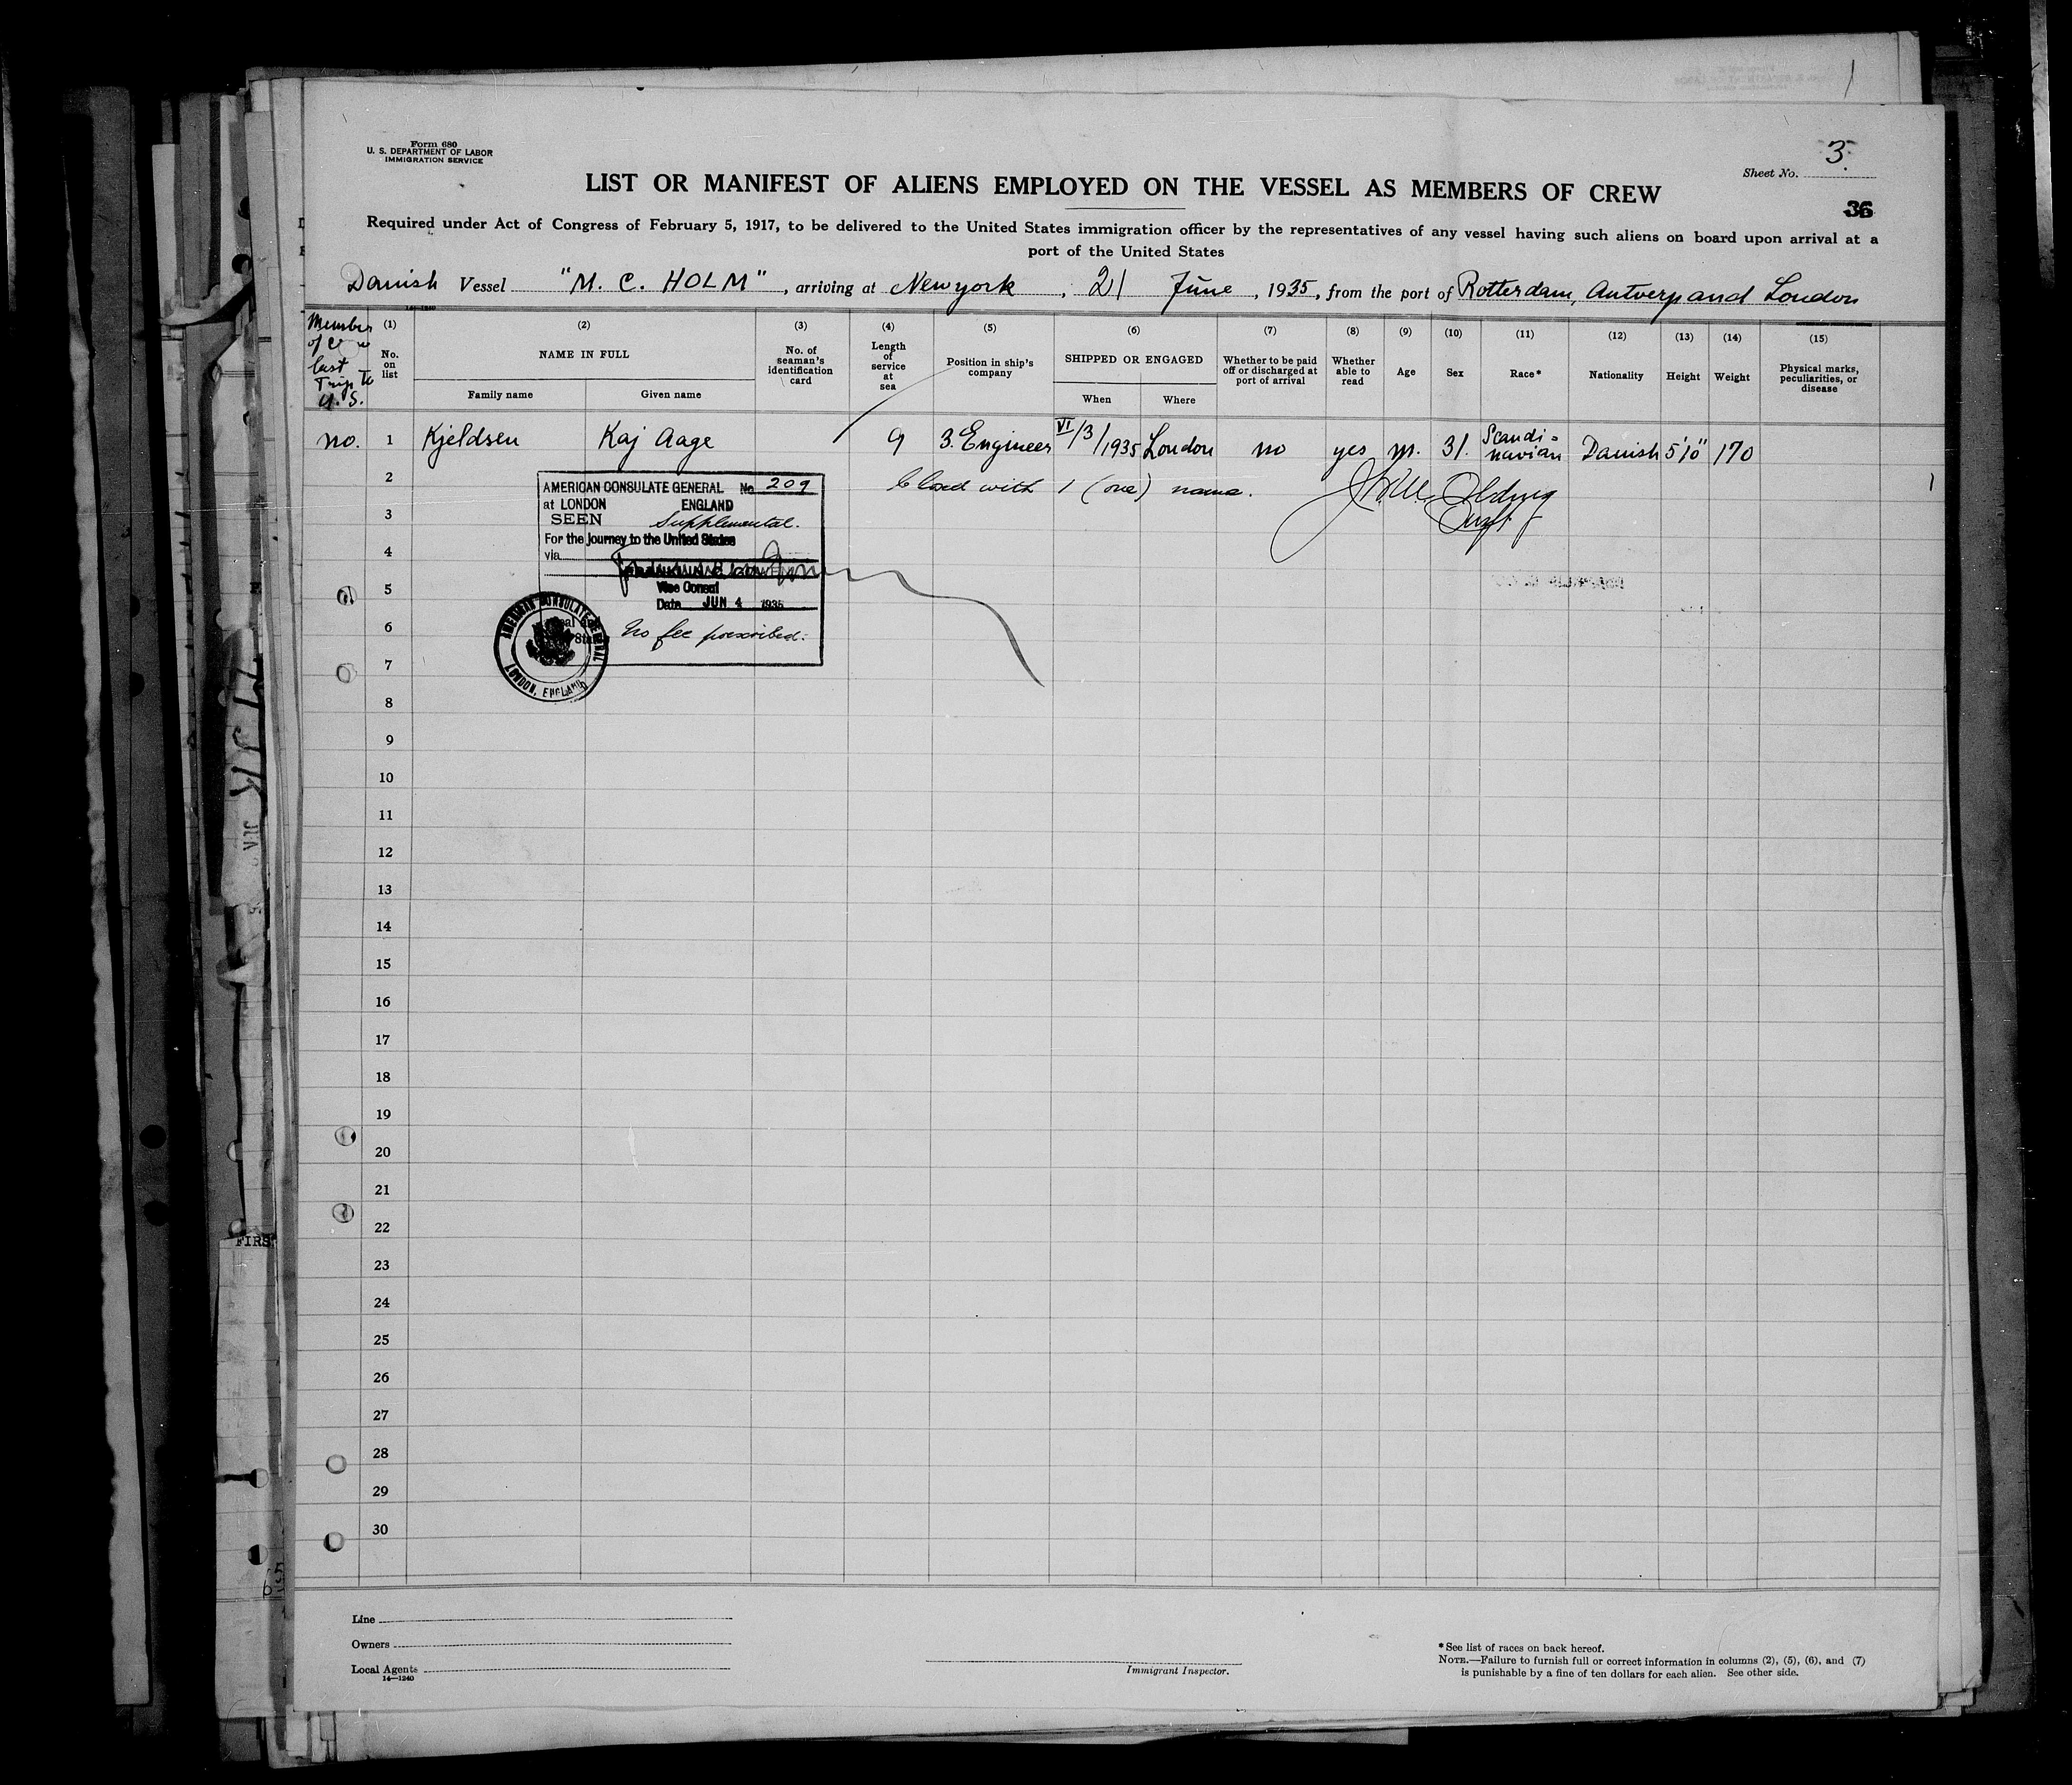 Form 680
U. S. DEPARTMENT OF LABOR
IMMIGRATION SERVICE
Sheet No. 3
LIST OR MANIFEST OF ALIENS EMPLOYED ON THE VESSEL AS MEMBERS OF CREW
36
Required under Act of Congress of February 5, 1917, to be delivered to the United States immigration officer by the representatives of any vessel having such aliens on board upon arrival at a
port of the United States
Danish Vessel "M. C. HOLM", arriving at Newyork, 21 June, 1935, from the port of Rotterdam, Antwerp and London
Member of crew last Trip to U.S.
(1) No. on list
(2) NAME IN FULL
Family name
Given name
(3) No. of seaman's identification card
(4) Length of service at sea
(5) Position in ship's company
(6) SHIPPED OR ENGAGED
When
Where
(7) Whether to be paid off or discharged at port of arrival
(8) Whether able to read
(9) Age
(10) Sex
(11) Race*
(12) Nationality
(13) Height
(14) Weight
(15) Physical marks, peculiarities, or disease
no. 1 Kjeldsen Kaj Aage 9 3. Engineer VI/3/1935 London no yes m. 31. Scandinavian Danish 5'10" 170
2 Closed with 1 (one) name. 1
3
4
5
6
7
8
9
10
11
12
13
14
15
16
17
18
19
20
21
22
23
24
25
26
27
28
29
30
AMERICAN CONSULATE GENERAL No 209
at LONDON ENGLAND
SEEN Supplemental.
For the journey to the United States
via
Vice Consul
Date JUN 4 1935
No fee prescribed.
AMERICAN CONSULATE GENERAL
LONDON, ENGLAND
Line
Owners
Local Agents
14—1240
Immigrant Inspector.
*See list of races on back hereof.
NOTE.—Failure to furnish full or correct information in columns (2), (5), (6), and (7)
is punishable by a fine of ten dollars for each alien. See other side.
FIRS